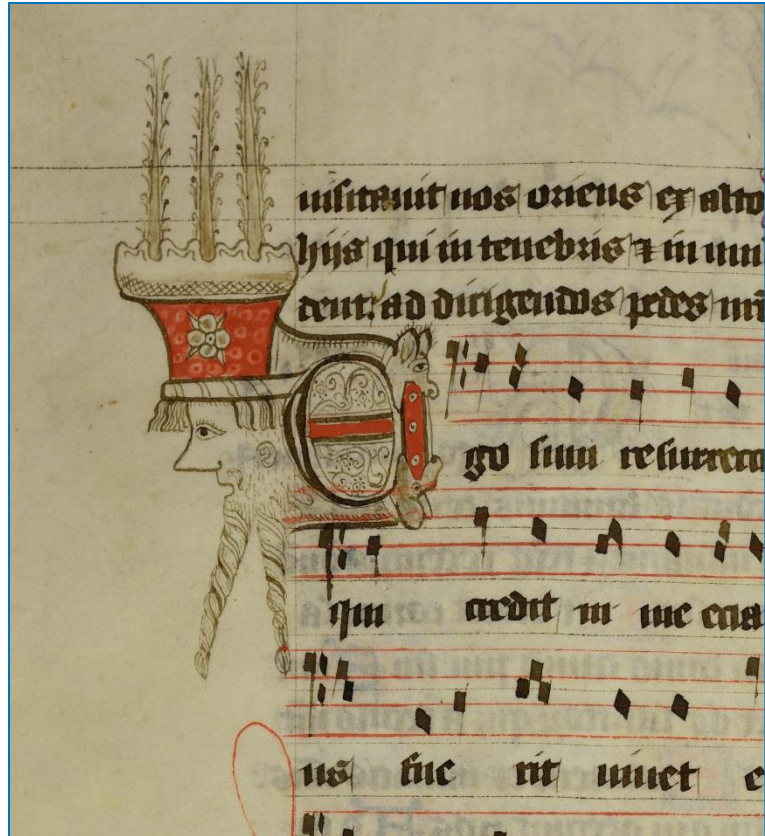 uisitauit nos oriens ex alto
hijs qui in tenebris ⁊ in um
dent: ad dirigendos pedes nr̄
Ego sum resurrecc
qui credit in me ecia
us fue rit uiuet e